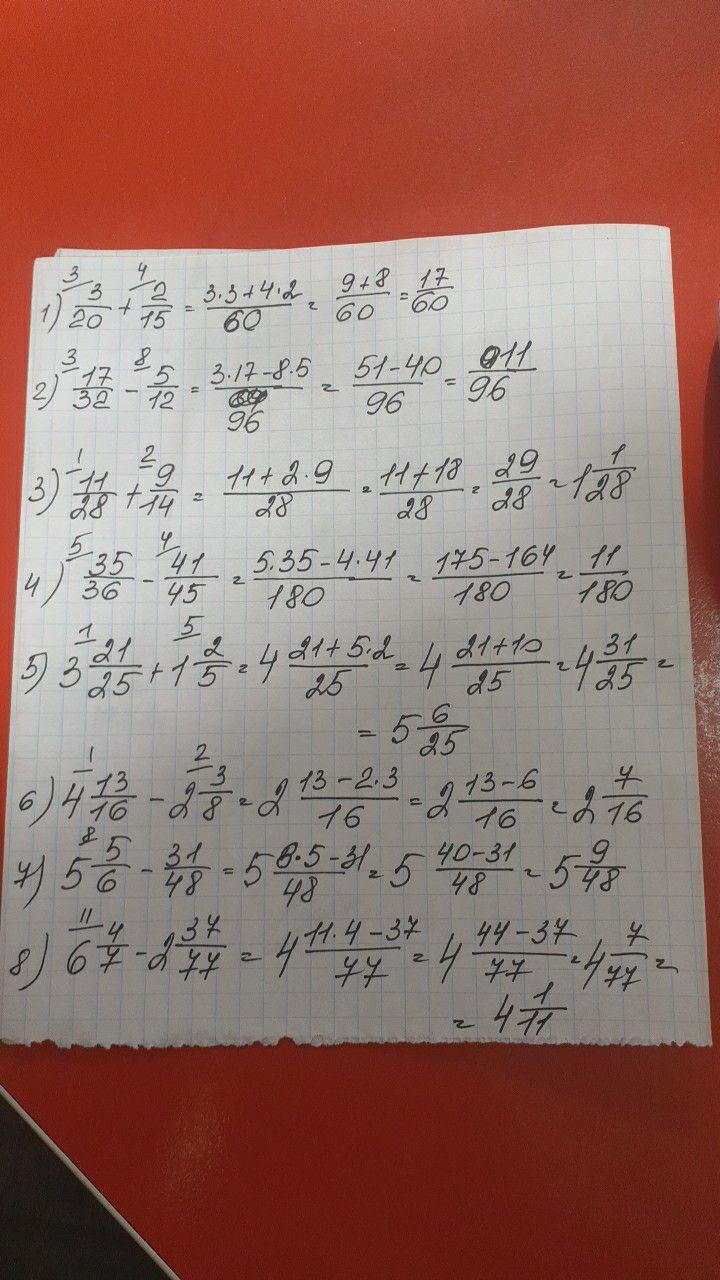 1) 3/20 ³⁄ + 2/15 ⁴⁄ = 3·3+4·2/60 = 9+8/60 = 17/60
2) 17/32 ³⁄ - 5/12 ⁸⁄ = 3·17-8·5/96 = 51-40/96 = 11/96
3) 11/28 ¹⁄ + 9/14 ²⁄ = 11+2·9/28 = 11+18/28 = 29/28 = 1 1/28
4) 35/36 ⁵⁄ - 41/45 ⁴⁄ = 5·35-4·41/180 = 175-164/180 = 11/180
5) 3 21/25 ¹⁄ + 1 2/5 ⁵⁄ = 4 21+5·2/25 = 4 21+10/25 = 4 31/25 =
= 5 6/25
6) 4 13/16 ¹⁄ - 2 3/8 ²⁄ = 2 13-2·3/16 = 2 13-6/16 = 2 7/16
7) 5 5/6 ⁸⁄ - 31/48 = 5 8·5-31/48 = 5 40-31/48 = 5 9/48
8) 6 4/7 ¹¹⁄ - 2 37/77 = 4 11·4-37/77 = 4 44-37/77 = 4 7/77 =
= 4 1/11